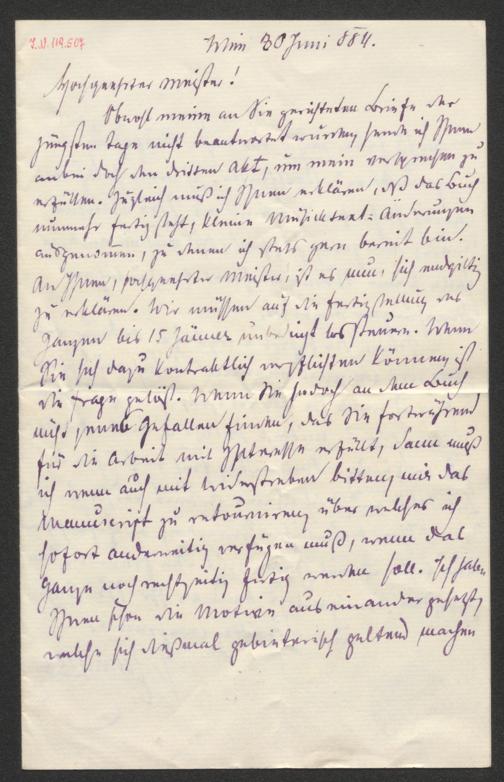 I.N. 119.507
Wien 30 Juni 884.
Hochgeehrter Meister!
Obwohl meine an Sie gerichteten Briefe der
jüngsten Tage nicht beantwortet wurden, sende ich Ihnen
anbei doch den dritten Akt, um mein Versprechen zu
erfüllen. Zugleich muß ich Ihnen erklären, daß das Buch
nunmehr fertig steht, kleine Musiktext-Änderungen
ausgenommen, zu denen ich stets gern bereit bin.
An Ihnen, hochgeehrter Meister, ist es nun, sich endgiltig
zu erklären. Wir müssen auf die Fertigstellung des
Ganzen bis 15 Jänner unbedingt lossteuern. Wenn
Sie sich dazu kontraktlich verpflichten können, ist
die Frage gelöst. Wenn Sie jedoch an dem Buch
nicht jenes Gefallen finden, das Sie fortwährend
für die Arbeit mit Interesse erfüllt, dann muß
ich wenn auch mit Widerstreben bitten, mir das
Manuscript zu retourniren, über welches ich
sofort anderweitig verfügen muß, wenn das
Ganze noch rechtzeitig fertig werden soll. Ich habe
Ihnen schon die Motive auseinander gesetzt,
welche sich dießmal gebieterisch geltend machen